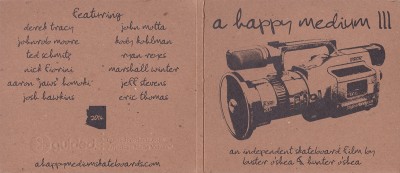 Featuring
derek tracy
john motta
johnrob moore
kody kohlman
ted schmitz
ryan reyes
nick fiorini
marshall winter
aaron "jaws" homoki
jeff stevens
josh hawkins
eric thomas
2014
ahappymediumskateboards.com
a happy medium III
an independent skateboard film by
buster o'shea & hunter o'shea